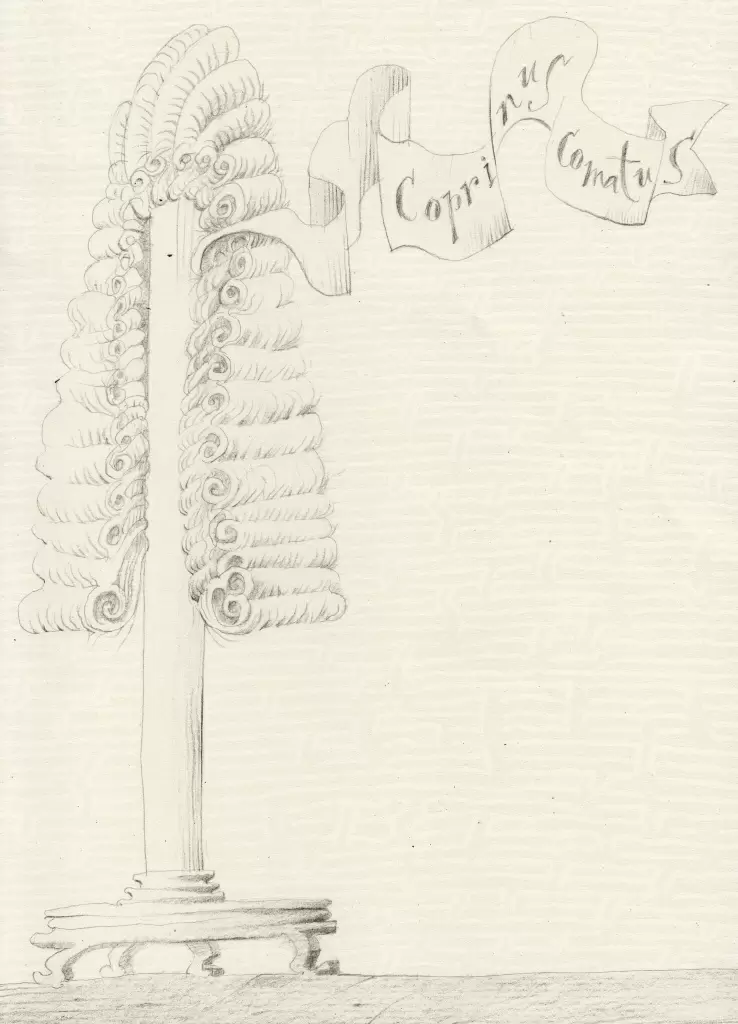 Coprinus Comatus